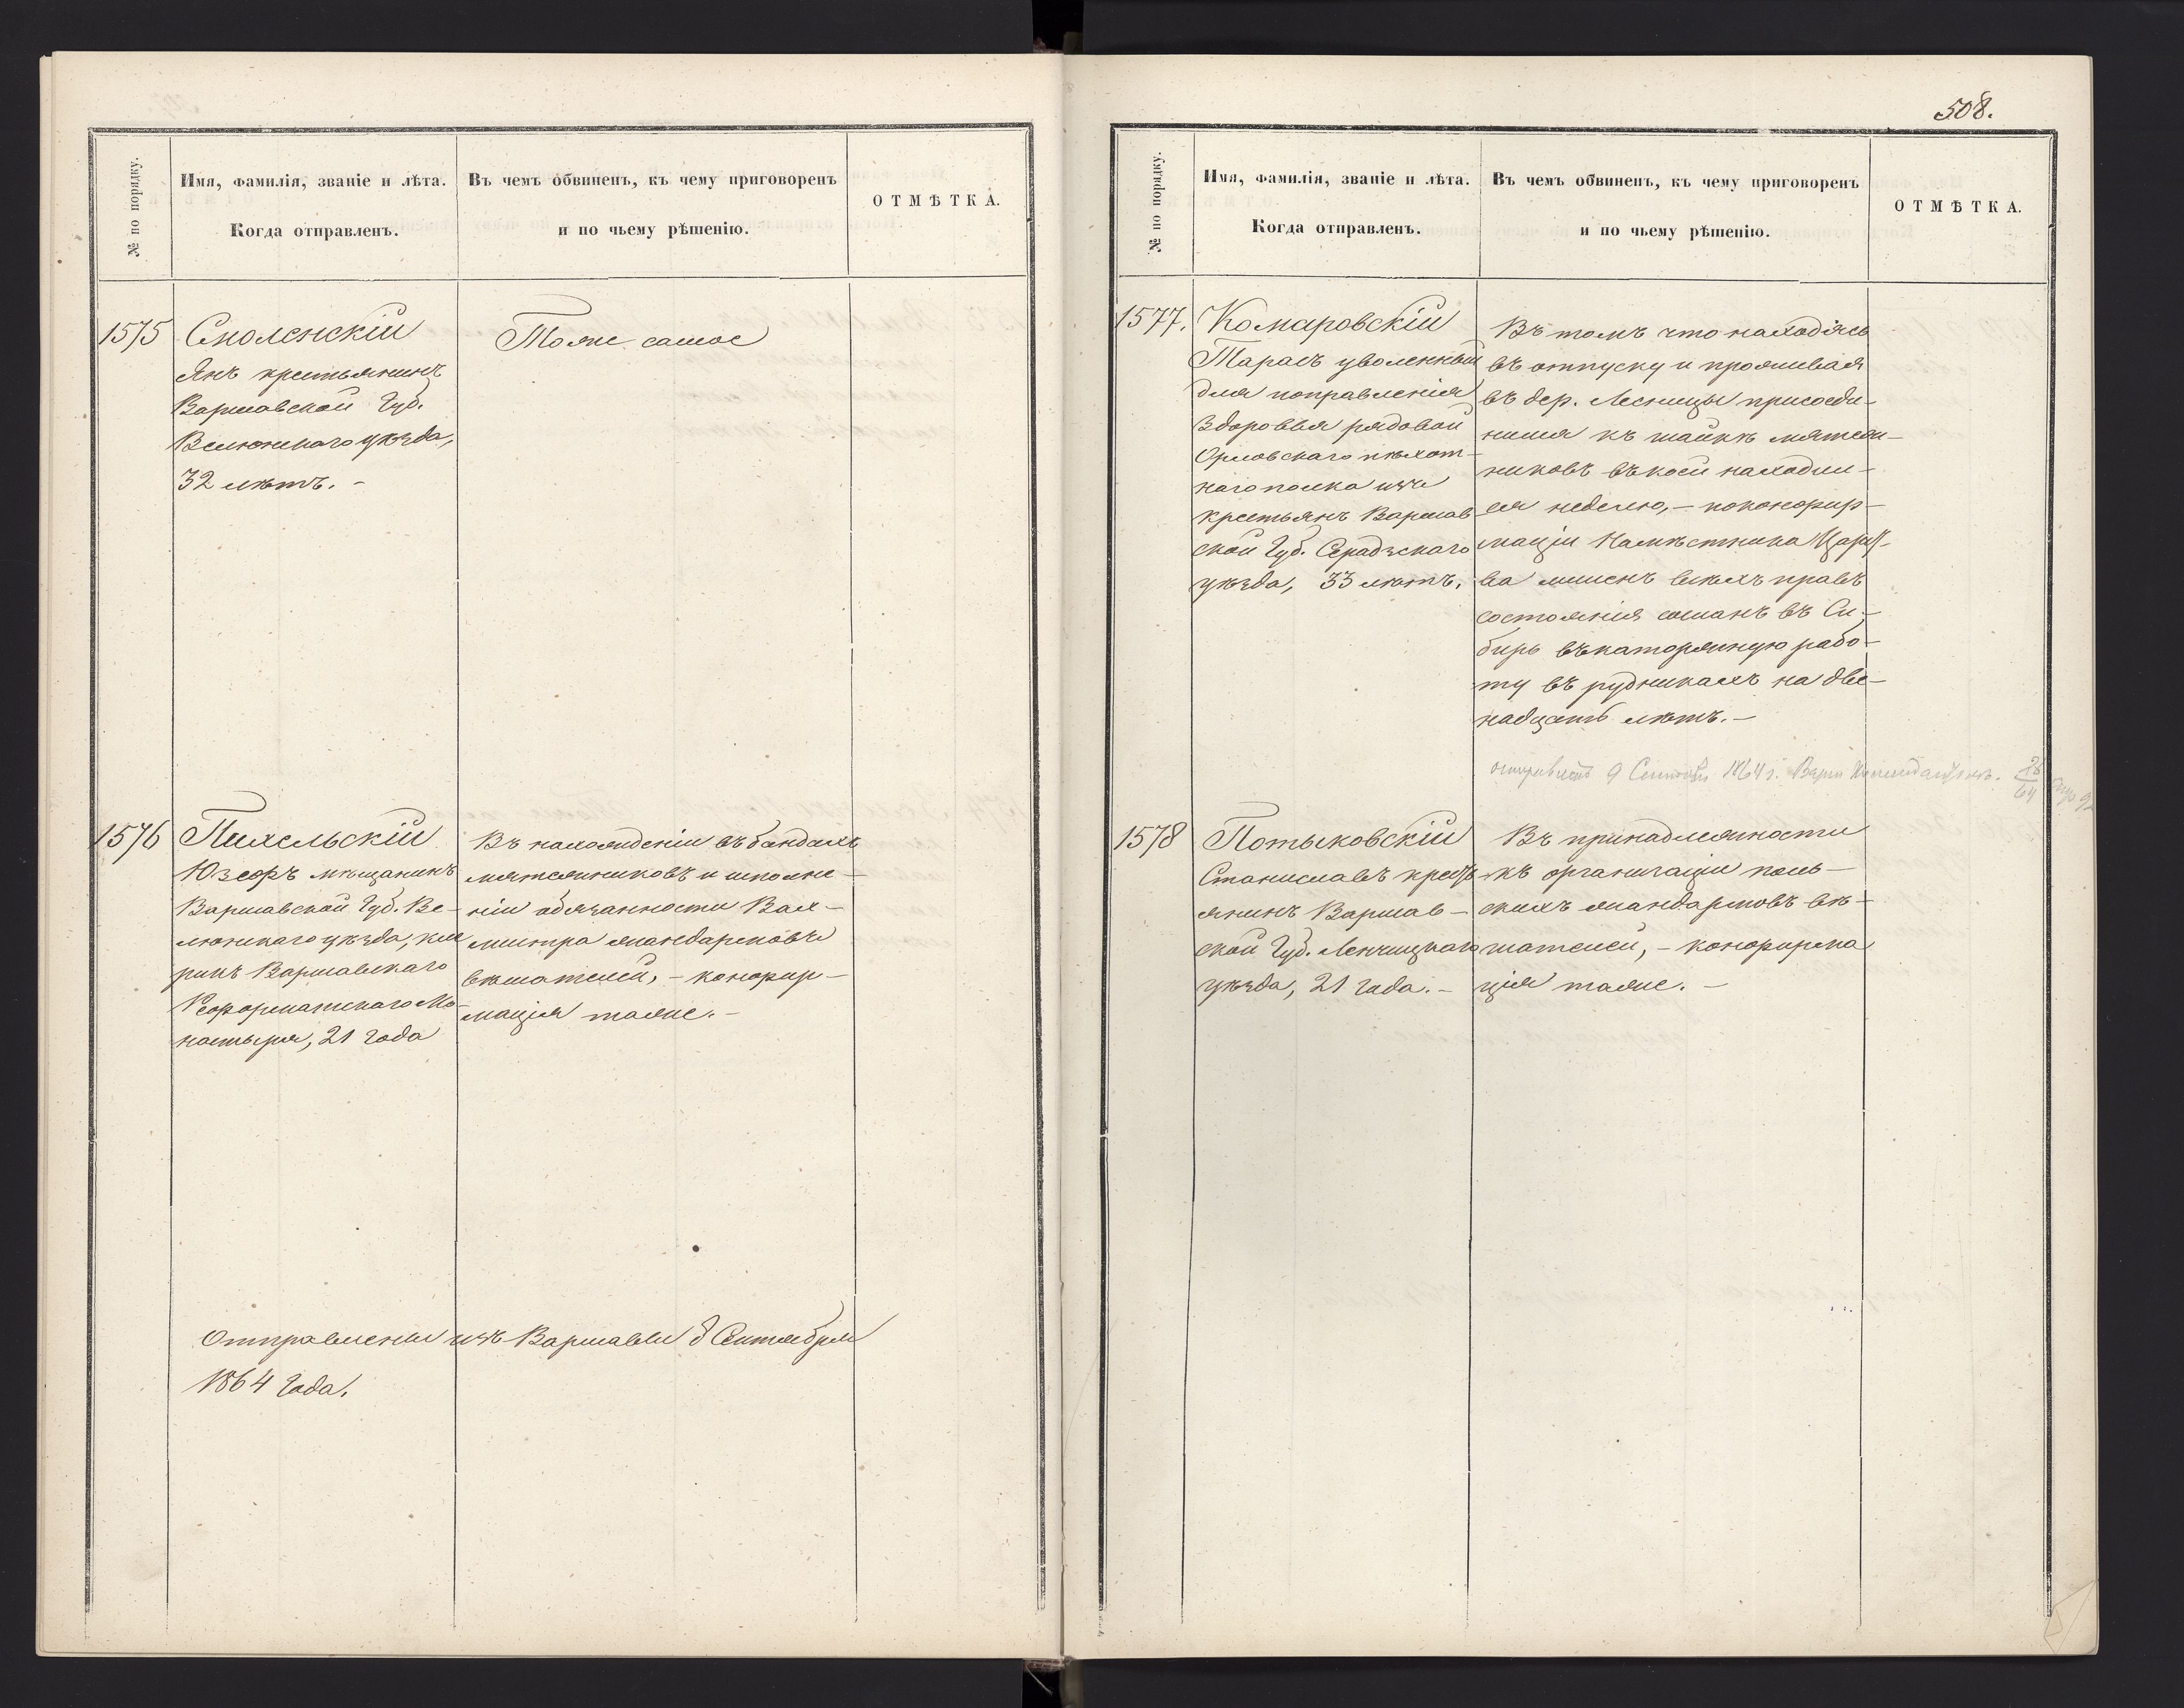 № по порядку.
Имя, фамилія, званіе и лѣта.
Когда отправленъ.
Въ чемъ обвиненъ, къ чему приговоренъ
и по чьему рѣшенію.
ОТМѢТКА.
1575
Смоленскій
Янъ крестьянинъ
Варшавской Губ.
Велюнскаго уѣзда,
32 лѣтъ. -
Тоже самое
1576
Пихельскій
Юзефъ мѣщанинъ
Варшавской Губ. Ве-
люнскаго уѣзда, кле
рикъ Варшавскаго
Реформатскаго Мо-
настыря, 21 года
Въ нахожденіи въ бандахъ
мятежниковъ и исполне-
ніи обязанности Вах-
мистра жандармовъ
вѣшателей, - конфир-
мація таже. -
Отправлены изъ Варшавы 8 Сентября
1864 года.
508.
№ по порядку.
Имя, фамилія, званіе и лѣта.
Когда отправленъ.
Въ чемъ обвиненъ, къ чему приговоренъ
и по чьему рѣшенію.
ОТМѢТКА.
1577.
Комаровскій
Тарасъ уволенный
для поправленія
здоровья рядовой
Орловскаго пѣхот-
наго полка изъ
крестьянъ Варшав
ской Губ. Серадзскаго
уѣзда, 33 лѣтъ.
Въ томъ что находясь
въ отпуску и проживая
въ дер. Лесницы присоеди-
нился къ шайкѣ мятеж-
никовъ въ коей находил-
ся неделю, - по конфир-
маціи Намѣстника Царст-
ва лишенъ всѣхъ правъ
состоянія сосланъ въ Си-
бирь въ каторжную рабо-
ту въ рудникахъ на две-
надцать лѣтъ. -
отправленъ 9 Сентября 1864 г.
1578
Потыковскій
Станиславъ крестъ-
янинъ Варшав-
ской Губ. Ленчицкаго
уѣзда, 21 года. -
Въ принадлежности
къ организаціи поль-
скихъ жандармовъ вѣ-
шателей, - конфирма
ція таже. -